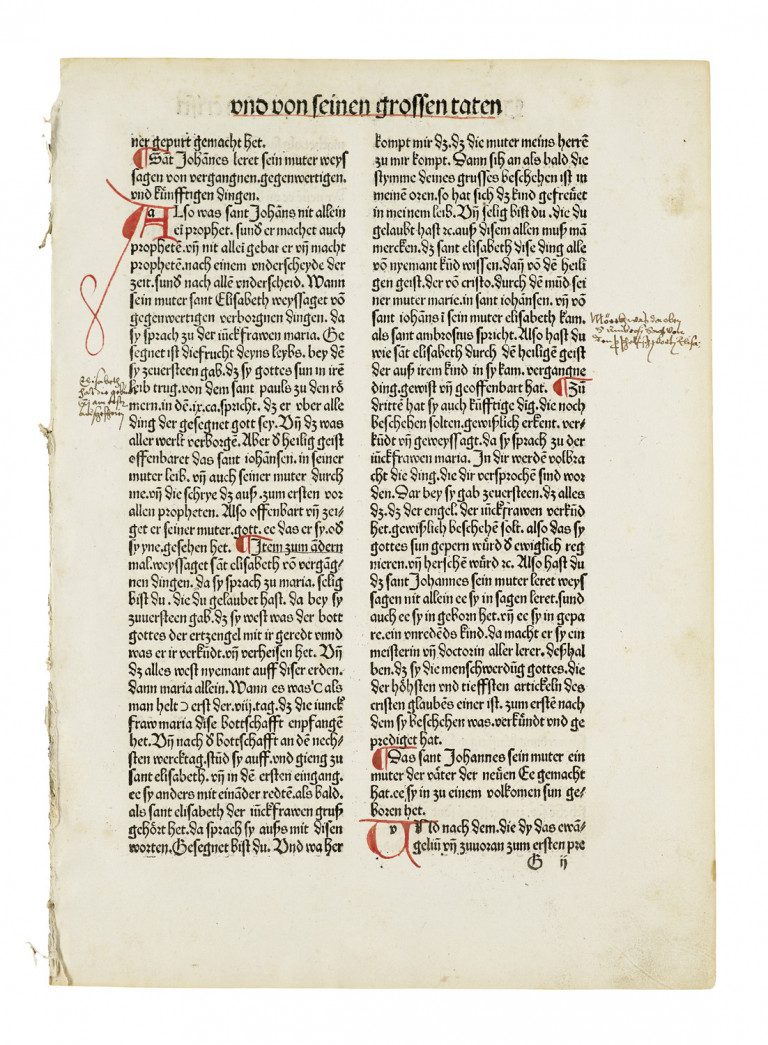 vnd von seinen grossen taten
ner gepurt gemacht het.
Sāt Johānes leret sein muter weys
sagen von vergangnen.gegenwertigen.
vnd kūnfftigen dingen.
ALso was sant Johāns nit allein
ei prophet. sund er machet auch
prophetē.vn̄ nit allei gebar er vn̄ macht
prophetē.nach einem vnderscheyde der
zeit.sund nach allē vnderscheid. Wann
sein muter sant Elisabeth weyssaget vō
gegenwertigen verborgnen dingen. da
sy sprach zu der iūckfrawen maria. Ge
segnet ist die frucht deyns leybs. bey dē
sy zeuersteen gab.dz sy gottes sun in irē
leib trug.von dem sant pauls zu den rō
mern.in dē.ix.ca.spricht.dz er vber alle
ding der gesegnet gott sey. Vn̄ dz was
aller werlt verborgē. Aber d̄ heilig geist
offenbaret das sant iohānsen.in seiner
muter leib.vn̄ auch seiner muter durch
ine.vn̄ die schrye dz auß.zum ersten vor
allen propheten. Also offenbart vn̄ zei⸗
get er seiner muter.gott.ee das er sy.od̄
sy yne.gesehen het. Item zum ādern
mal.weyssaget sāt elisabeth vō vergāg⸗
nen dingen. da sy sprach zu maria. selig
bist du. die du gelaubet hast. da bey sy
zuuersteen gab.dz sy west was der bott
gottes der ertzengel mit ir geredt vnnd
was er ir verkūdt.vn̄ verheisen het. Vn̄
dz alles west nyemant auff diser erden.
dann maria allein. Wann es was C als
man helt ↄ erst der.viij.tag.dz die iunck
fraw maria dise bottschafft enpfangē
het. Vn̄ nach d̄ bottschafft an dē nech⸗
sten wercktag.stūd sy auff.vnd gieng zu
sant elisabeth.vn̄ in dē ersten eingang.
ee sy anders mit eināder.redtē.als bald.
als sant elisabeth der iūckfrawen gruß
gehört het.da sprach sy auß mit disen
worten.Gesegnet bist du. Vnd wa her
kompt mir dz.dz die muter meins herrē
zu mir kompt. Dann sih an als bald die
stymme deines grusses beschehen ist in
meinē oren.so hat sich dz kind gefreüet
in meinem leib. Vn̄ selig bist du. die du
gelaubt hast ꝛc. auß disem allen muß mā
mercken.dz sant elisabeth dise ding alle
von nyemant kūd wissen. dan̄ vō dē heili
gen geist.der vō cristo.durch dē mūd sei
ner muter marie.in sant iohansen.vn̄ vō
sant iohans ī sein muter elisabeth kam.
als sant ambrosius spricht. Also hast du
wie sāt elisabeth durch dē heiligē geist
der auß irem kind in sy kam. vergangne
ding.gewist vn̄ geoffenbart hat. Zū
drittē hat sy auch kūfftige dīg.die noch
beschehen solten.gewißlich erkent.ver⸗
kūdt vn̄ geweyssagt.da sy sprach zu der
iūckfrawen maria. In dir werdē volbra
cht die ding.die dir versprochē sind wor
den. Dar bey sy gab zeuersteen.dz alles
dz.dz der engel. der iūckfrawen verkūd
het.gewißlich beschehē solt. also das sy
gottes sun gepern würd d̄ ewiglich reg
nieren.vn̄ herschē würd ꝛc. Also hast du
dz sant Johannes sein muter leret weys
sagen nit allein ee sy in sagen leret.sund
auch ee sy in geborn het.vn̄ ee sy in gepa
re.ein vnredēds kind.da macht er sy ein
meisterin vn̄ doctorin aller lerer. deßhal
ben.dz sy die menschwerdūg gottes.die
der höhsten vnd tieffsten artickeln des
cristen glaubēs einer ist. zum erstē nach
dem sy beschehen was.verkūndt vnd ge
prediget hat.
Das sant Johannes sein muter ein
muter der väter der neüen Ee gemacht
hat.ee sy in zu einem volkomen sun ge⸗
boren het.
VNd nach dem.die dy das ewā⸗
geliū vn̄ zuuoran zum ersten pre
G ij